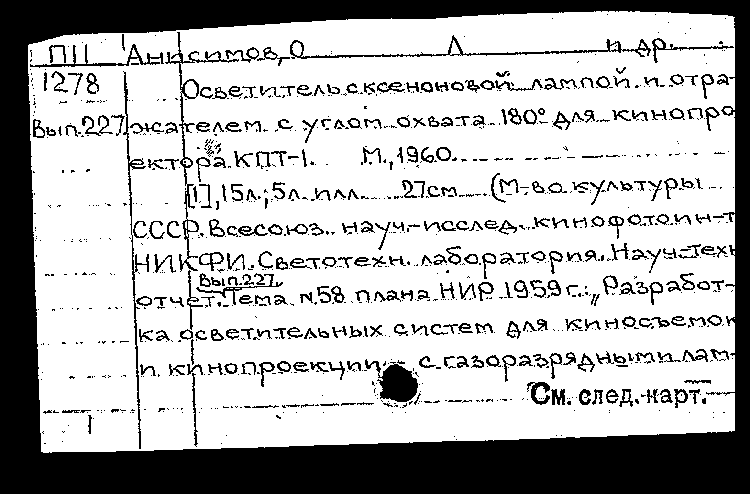 П11 Анисимов, О Л и др.
1278 Осветитель с ксеноновой лампой и отра-
Вып.227 жателем с углом охвата 180° для кинопро
ектора КПТ-1. М., 1960.
[1], 15л.; 5л. илл. 27см (М-во культуры
СССР. Всесоюз. науч.-исслед. кинофотоин-т
НИКФИ. Светотехн. лаборатория. Науч.-техн
Вып.227.
отчет. Тема №58 плана НИР 1959г.: „Разработ-
ка осветительных систем для киносъемок
и кинопроекции с газоразрядными лам-
См. след. карт.
1